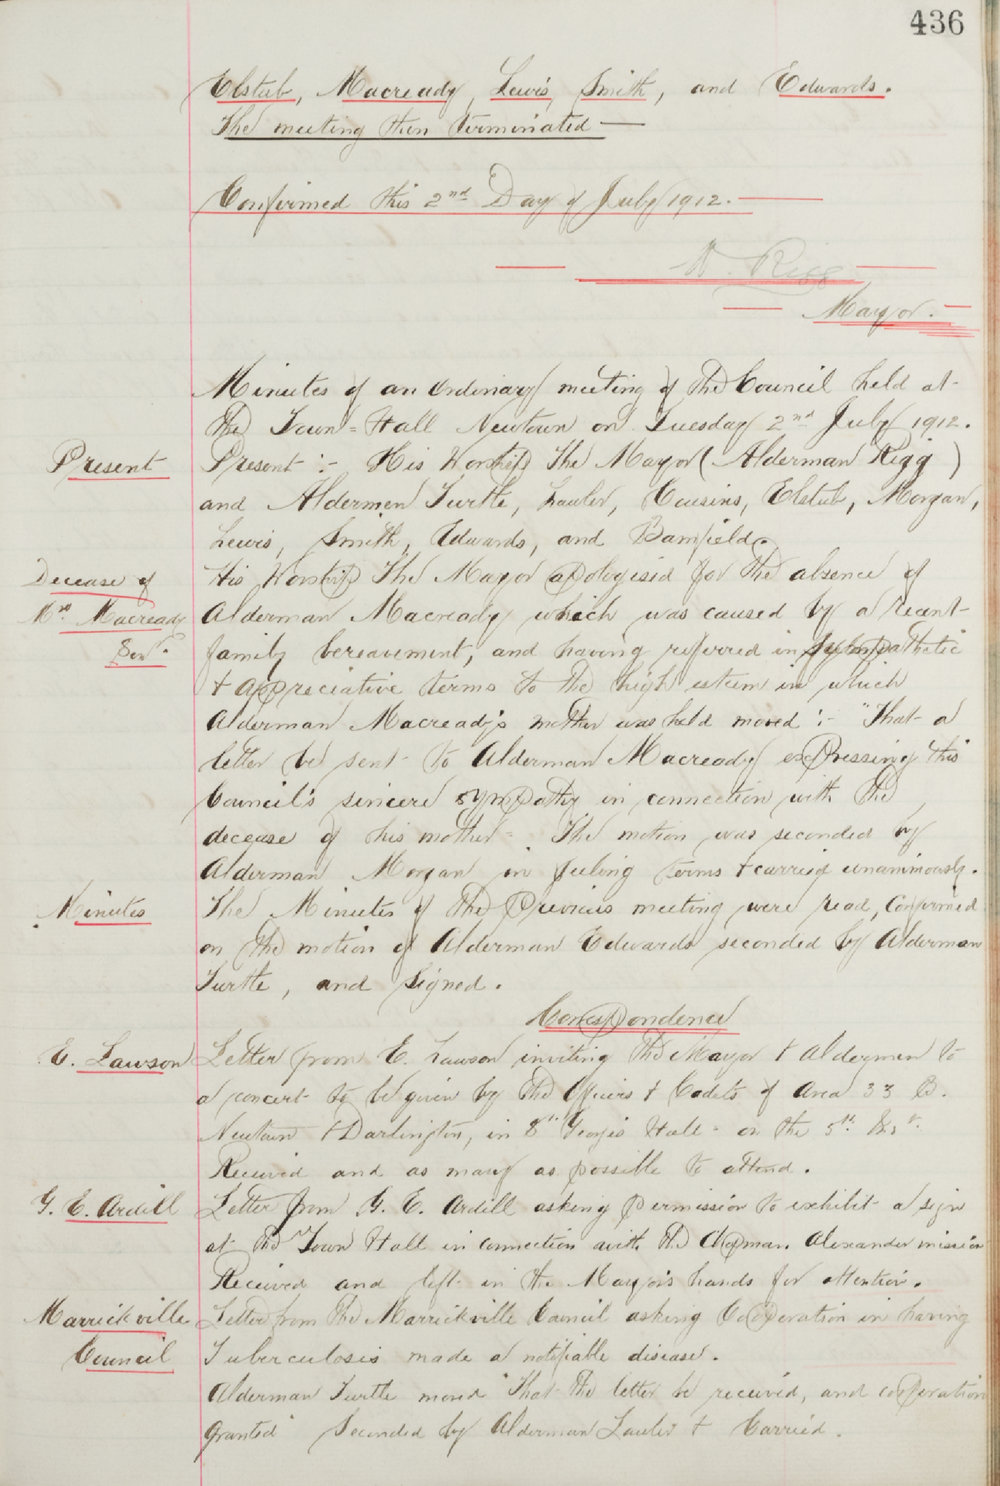 436
Elstub, Macready, Lewis, Smith, and Edwards.
The meeting then terminated —
Confirmed this 2nd Day of July 1912.
W. Rigg
Mayor.
Minutes of an ordinary meeting of the Council held at
the Town-Hall Newtown on Tuesday 2nd July 1912.
Present
Present :- His Worship The Mayor (Alderman Rigg)
and Aldermen Turtle, Lawler, Cousins, Elstub, Morgan,
Lewis, Smith, Edwards, and Bamfield.
Decease of
Mrs Macready
Senr.
His Worship The Mayor apologised for the absence of
Alderman Macready which was caused by a recent
family bereavement, and having referred in sympathetic
& appreciative terms to the high esteem in which
Alderman Macready's mother was held moved :- "That a
letter be sent to Alderman Macready expressing this
Council's sincere sympathy in connection with the
decease of his mother". The motion was seconded by
Alderman Morgan in feeling terms & carried unanimously.
Minutes
The Minutes of the Previous meeting were read, Confirmed
on the motion of Alderman Edwards seconded by Alderman
Turtle, and Signed.
Correspondence
E. Lawson
Letter from E. Lawson inviting the Mayor & Aldermen to
a concert to be given by the Officers & Cadets of Area 33 B.
Newtown & Darlington, in St George's Hall - on the 5th Inst.
Received and as many as possible to attend.
G. E. Ardill
Letter from G. E. Ardill asking permission to exhibit a sign
at the Town Hall in connection with the Chapman Alexander mission
Received and left in the Mayor's hands for attention.
Marrickville
Council
Letter from the Marrickville Council asking Cooperation in having
Tuberculosis made a notifiable disease.
Alderman Turtle moved "That the letter be received, and cooperation
granted" Seconded by Alderman Lawler & Carried.